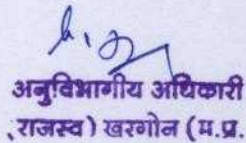 अनुविभागीय अधिकारी
राजस्व) खरगोन (म.प्र.